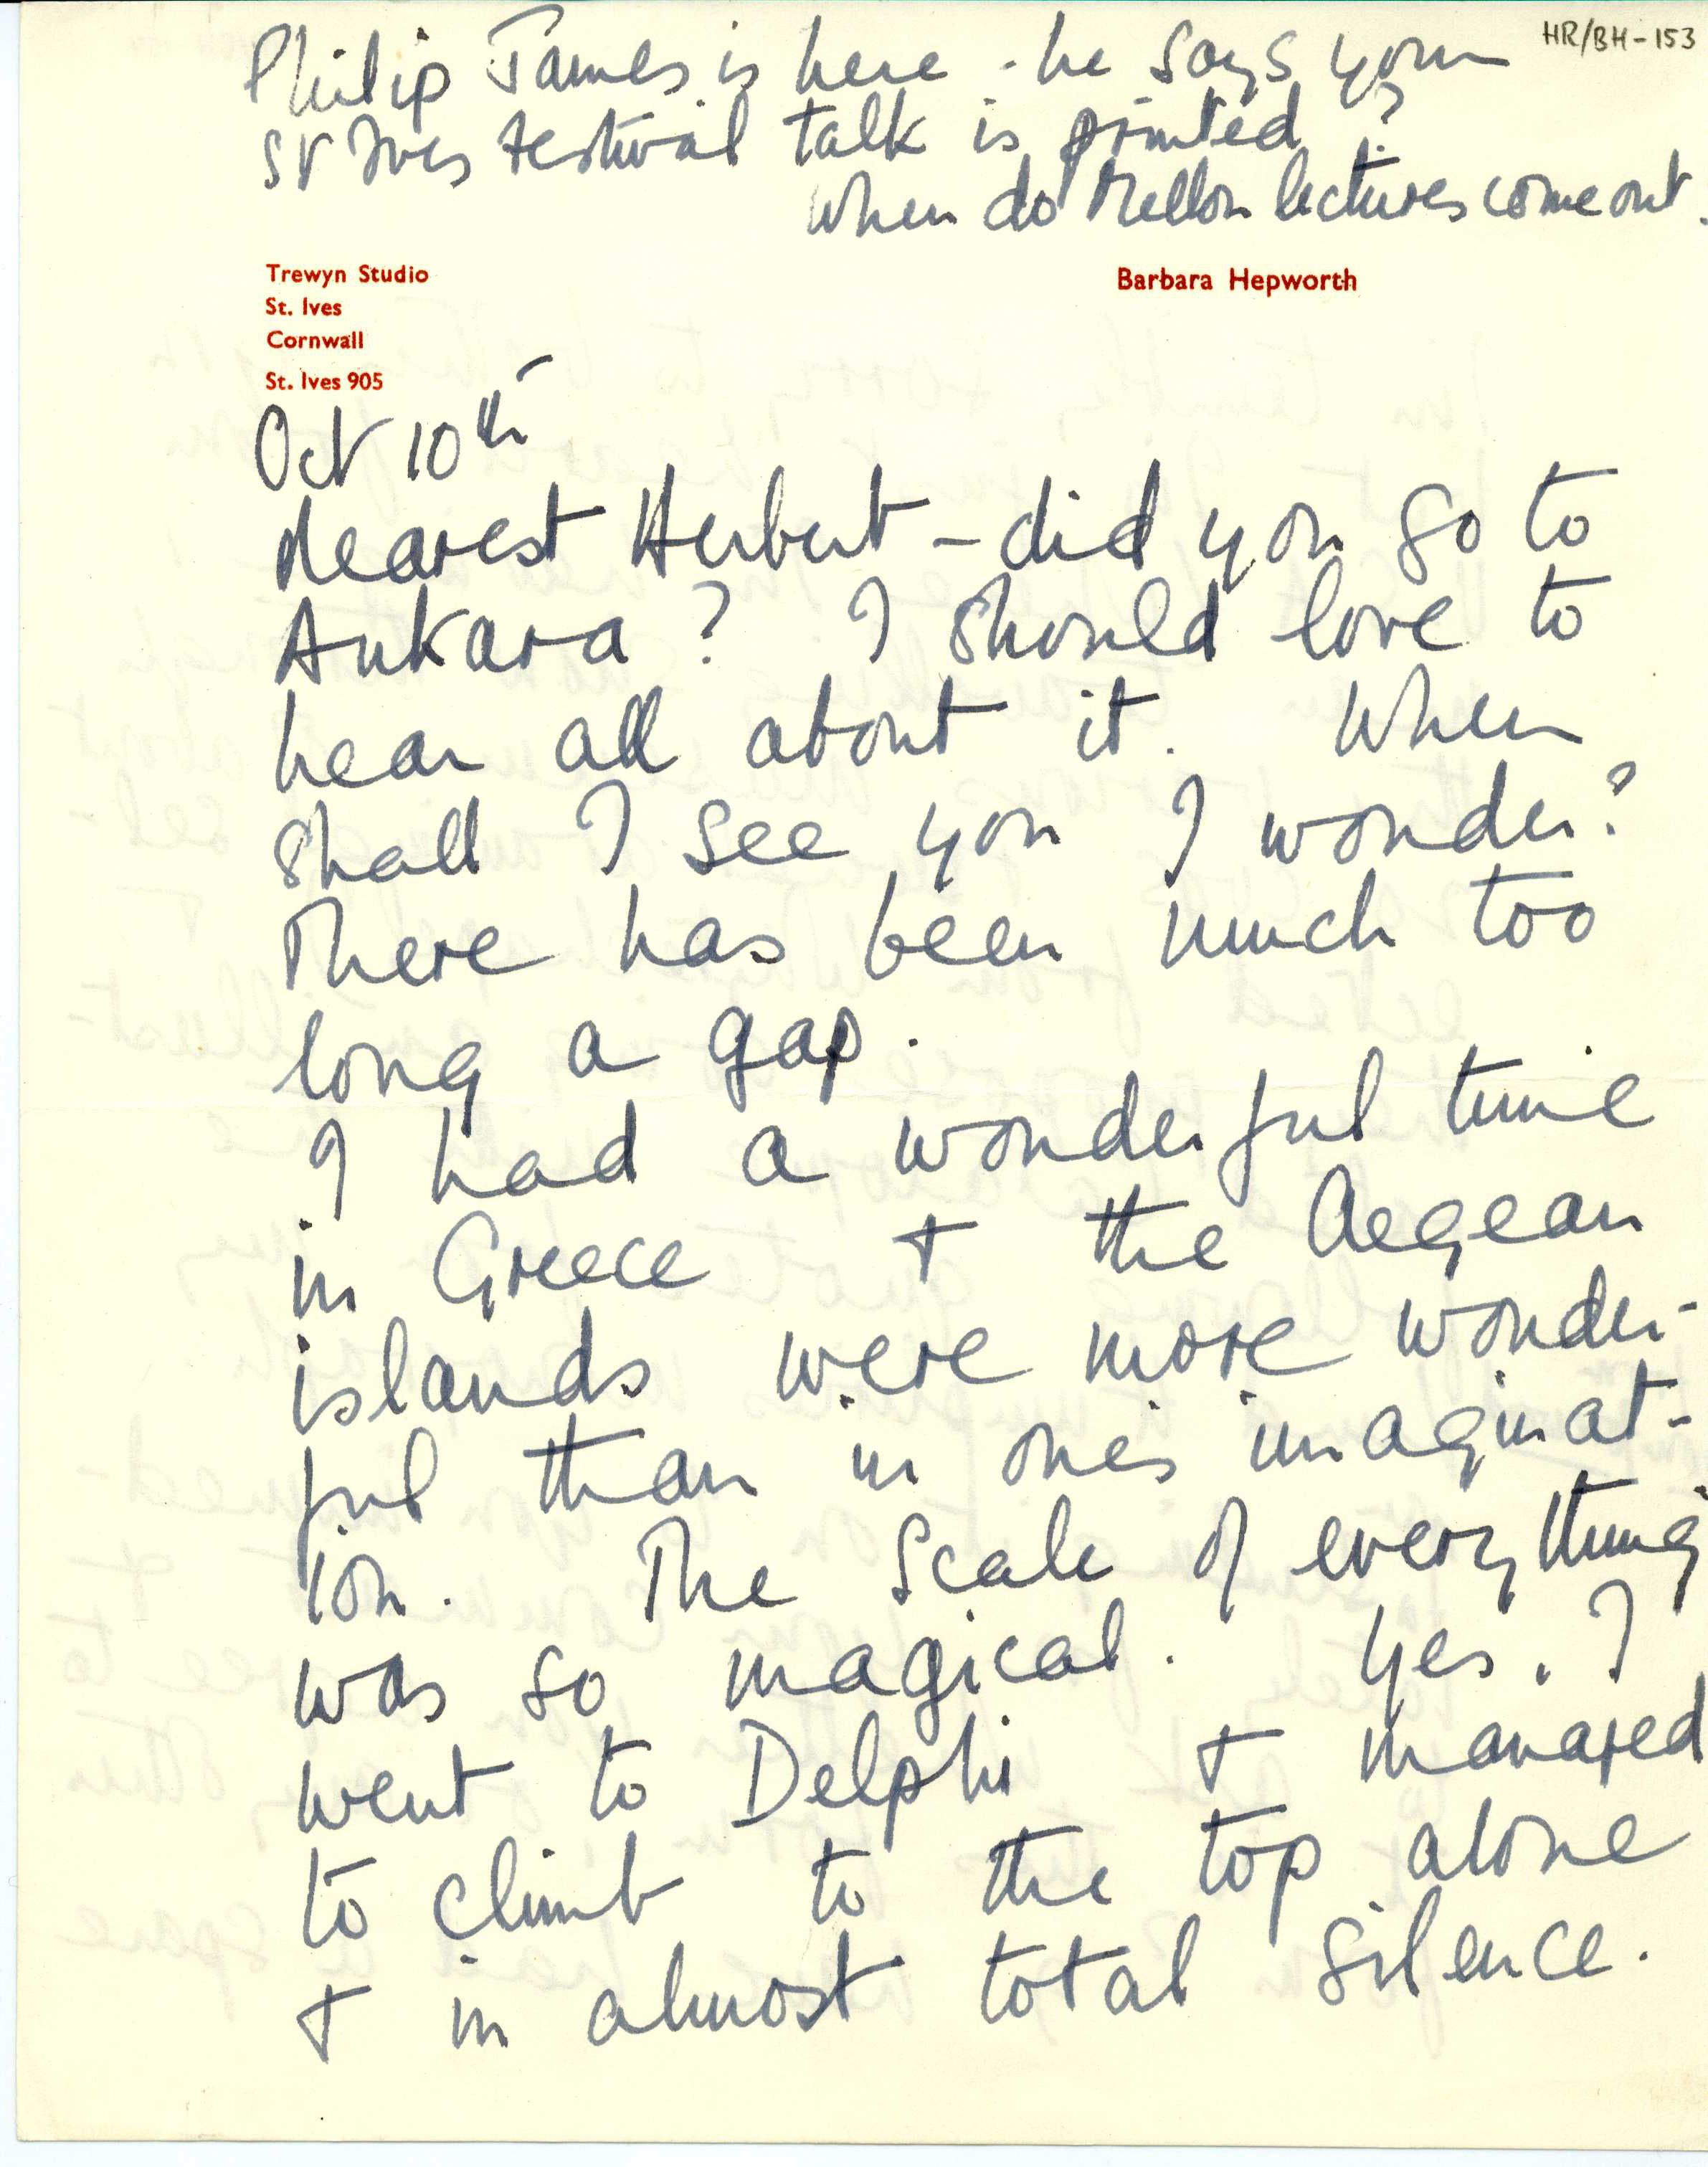 HR/BH-153
Philip James is here - he says your
St Ives festival talk is printed?
When do Mellon lectures come out.
Trewyn Studio
St. Ives
Cornwall
St. Ives 905
Barbara Hepworth
Oct 10th
dearest Herbert - did you go to
Ankara? I should love to
hear all about it. When
shall I see you I wonder?
There has been much too
long a gap.
I had a wonderful time
in Greece + the Aegean
islands were more wonder-
ful than in ones imaginat-
ion. The scale of everything
was so magical. Yes. I
went to Delphi + managed
to climb to the top alone
+ in almost total silence.